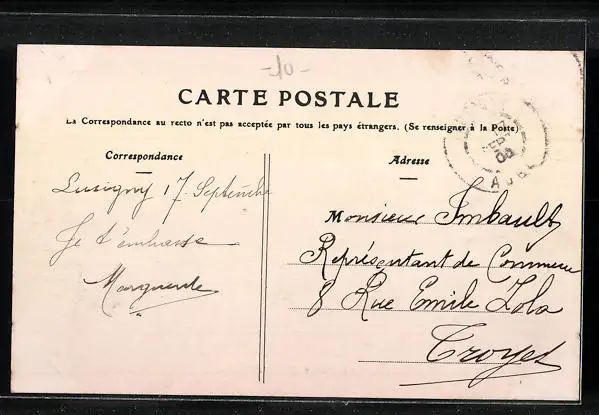 -10-
CARTE POSTALE
La Correspondance au recto n'est pas acceptée par tous les pays étrangers. (Se renseigner à la Poste)
Correspondance
Lusigny 17 Septembre
Je t'embrasse
Marguerite
Adresse
Monsieur Imbault
Représentant de Commerce
8 Rue Emile Zola
Troyes
AUBE